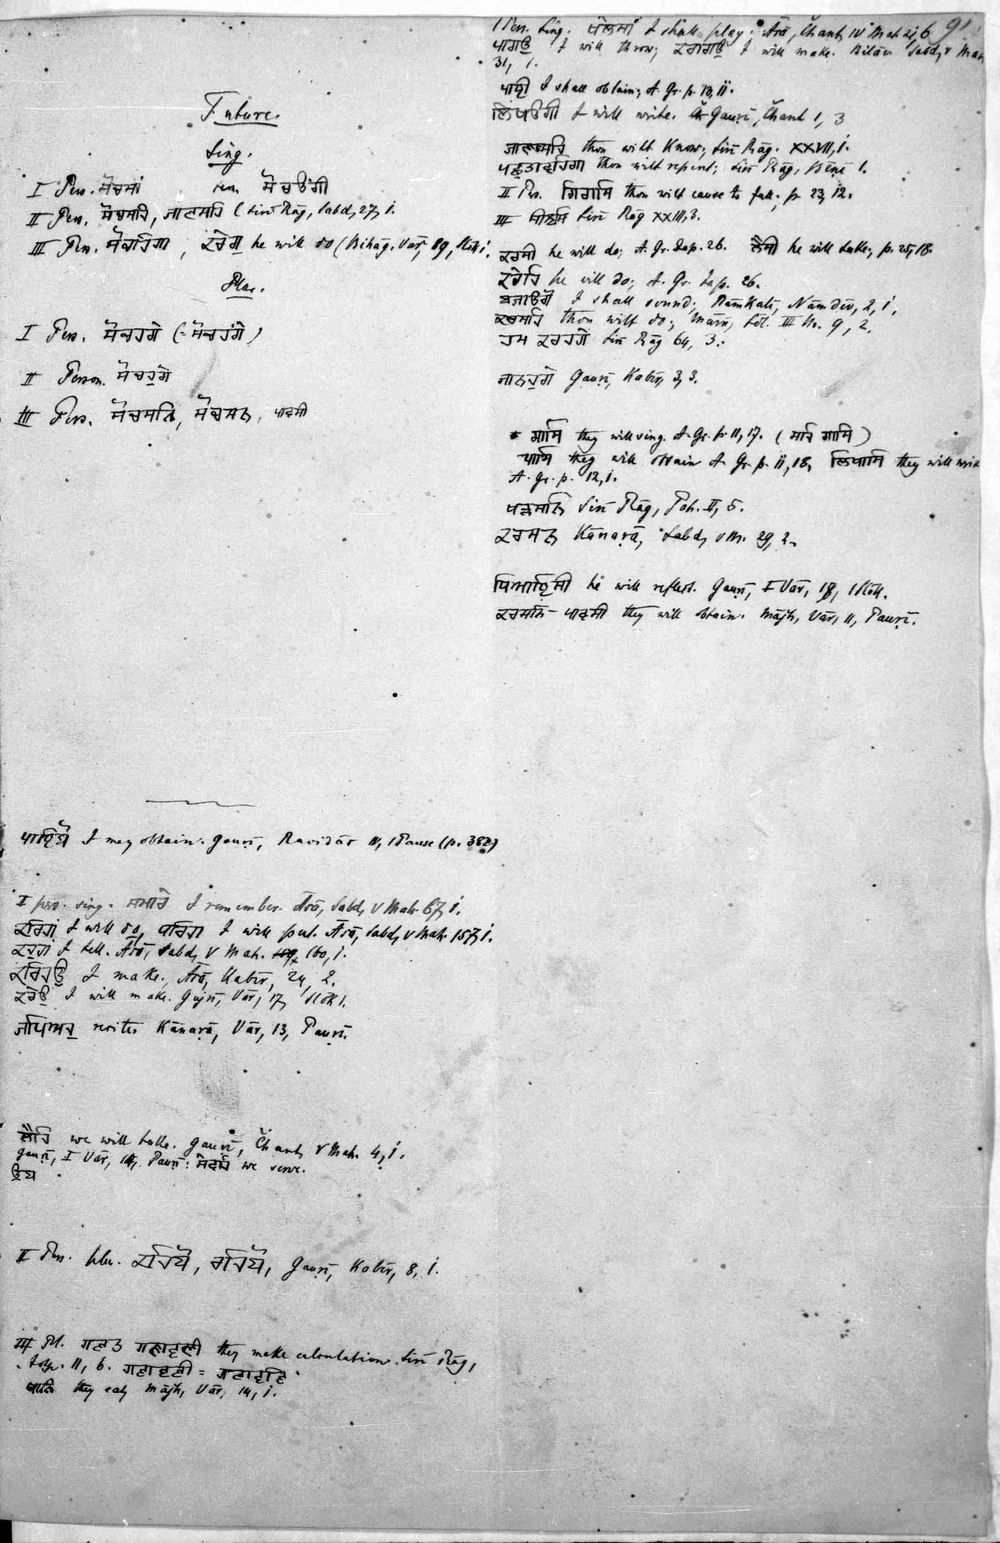 91
Future.
Sing.
I Pers. ਸੋਚਸਾਂ ਸੋਚਉਂਗੀ
II Pers. ਸੋਚਸਹਿ, ਜਾਣਸਹਿ (Sirī Rāg, Sabd, 27, 1.
III Pers. ਸੋਚਹਿਗਾ, ਕਰੇਗੁ he will do (Bihāg. Vār, 89,
Plur.
I Pers. ਸੋਚਹਗੇ (= ਸੋਚਹਂਗੇ)
II Person. ਸੋਚਹੁਗੇ
III Pers. ਸੋਚਸਨਿ, ਸੋਚਸਨ, ਪਾਵਸੀ
I may obtain. Gauṛī, Ravidās 11, 1 Pause (p. 382)
I pers. sing. ਸਮਾਰੇ I remember. Āsā, Sabd, V Mah. 67, 1.
ਕਰਿਹਾਂ I will do, ਧਰਿਹਾ I will put. Āsā, Sabd, V Mah. 157, 1.
ਕਹੁਗਾ I tell. Āsā, Sabd, V Mah. 160, 1.
ਕਰਿਹਉ I make. Āsā, Kabīr, 24, 2.
ਕਰੇਉ I will make. Gujrī, Vār, 17, Slōk 1.
ਜਪਿਅਹੁ recite. Kānaṛā, Vār, 13, Pauṛī.
ਲੈਹਿ we will take. Gauṛī, Čhant, V Mah. 4, 1.
Gauṛī, I Vār, 14, Pauṛī: we serve.
II Pers. plur. ਕਹਿਯੋ, ਰਹਿਯੋ, Gauṛī, Kabīr, 8, 1.
III Pl. ਗਣਤ ਗਣਾਵਣੀ they make calculation. Sirī Rāg,
Asṭp. 11, 6. ਗਣਾਵਣੀ = ਗਣਾਵਣਿ
ਖਾਨਿ they eat, Mājh, Vār, 14, 1.
I Pers. Sing. ਖੇਲਸਾਂ I shall play; Āsā, Čhant, IV Mah. 21, 6
ਪਾਗਉ I will throw; I will make. Bilāv. Sabd, V Mah.
31, 1.
I shall obtain; A. Gr. p. 13, 11.
ਲਿਖਉਗੀ I will write. Gauṛī, Čhant 1, 3
ਜਾਣਸਹਿ thou wilt know; Sirī Rāg. XXVII, 1.
ਪਛੁਤਾਵਹਿਗਾ thou wilt repent; Sirī Rāg, Bēṇī 1.
II Pers. ਗਿਰਾਸਿ thou wilt cause to fall. p. 23, 12.
III ਮੀਲਸਿ Sirī Rāg XXIII, 3.
ਕਰਸੀ he will do; A. Gr. Jap. 26. ਲੈਸੀ he will take; p. 25, 18.
ਕਰੇਹਿ he will do; A. Gr. Jap. 26.
ਬਜਾਉਗੋ I shall sound. Rāmkalī, Nāmdēv, 2, 1,
ਕਰਸਹਿ thou wilt do; Mārū, Sōl. III M. 9, 2.
ਹਮ ਕਰਹਗੇ Sirī Rāg 64, 3.
ਜਾਨਹੁਗੇ Gauṛī, Kabīr, 3, 3.
ਗਾਸਿ they will sing. A. Gr. p. 11, 17. (ਸਹਿ ਗਾਸਿ)
ਪਾਸਿ they will obtain A. Gr. p. 11, 18, ਲਿਖਾਸਿ they will write
A. Gr. p. 12, 1.
ਪੜਸਨਿ Sirī Rāg, Pah. II, 5.
ਕਰਸਨ Kānaṛā, Sabd, V M. 29, 2.
ਧਿਆਇਸੀ he will reflect. Gauṛī, I Vār, 18, 1 Slōk.
ਕਰਸਨਿ – ਪਾਵਸੀ they will obtain. Mājh, Vār, 11, Pauṛī.